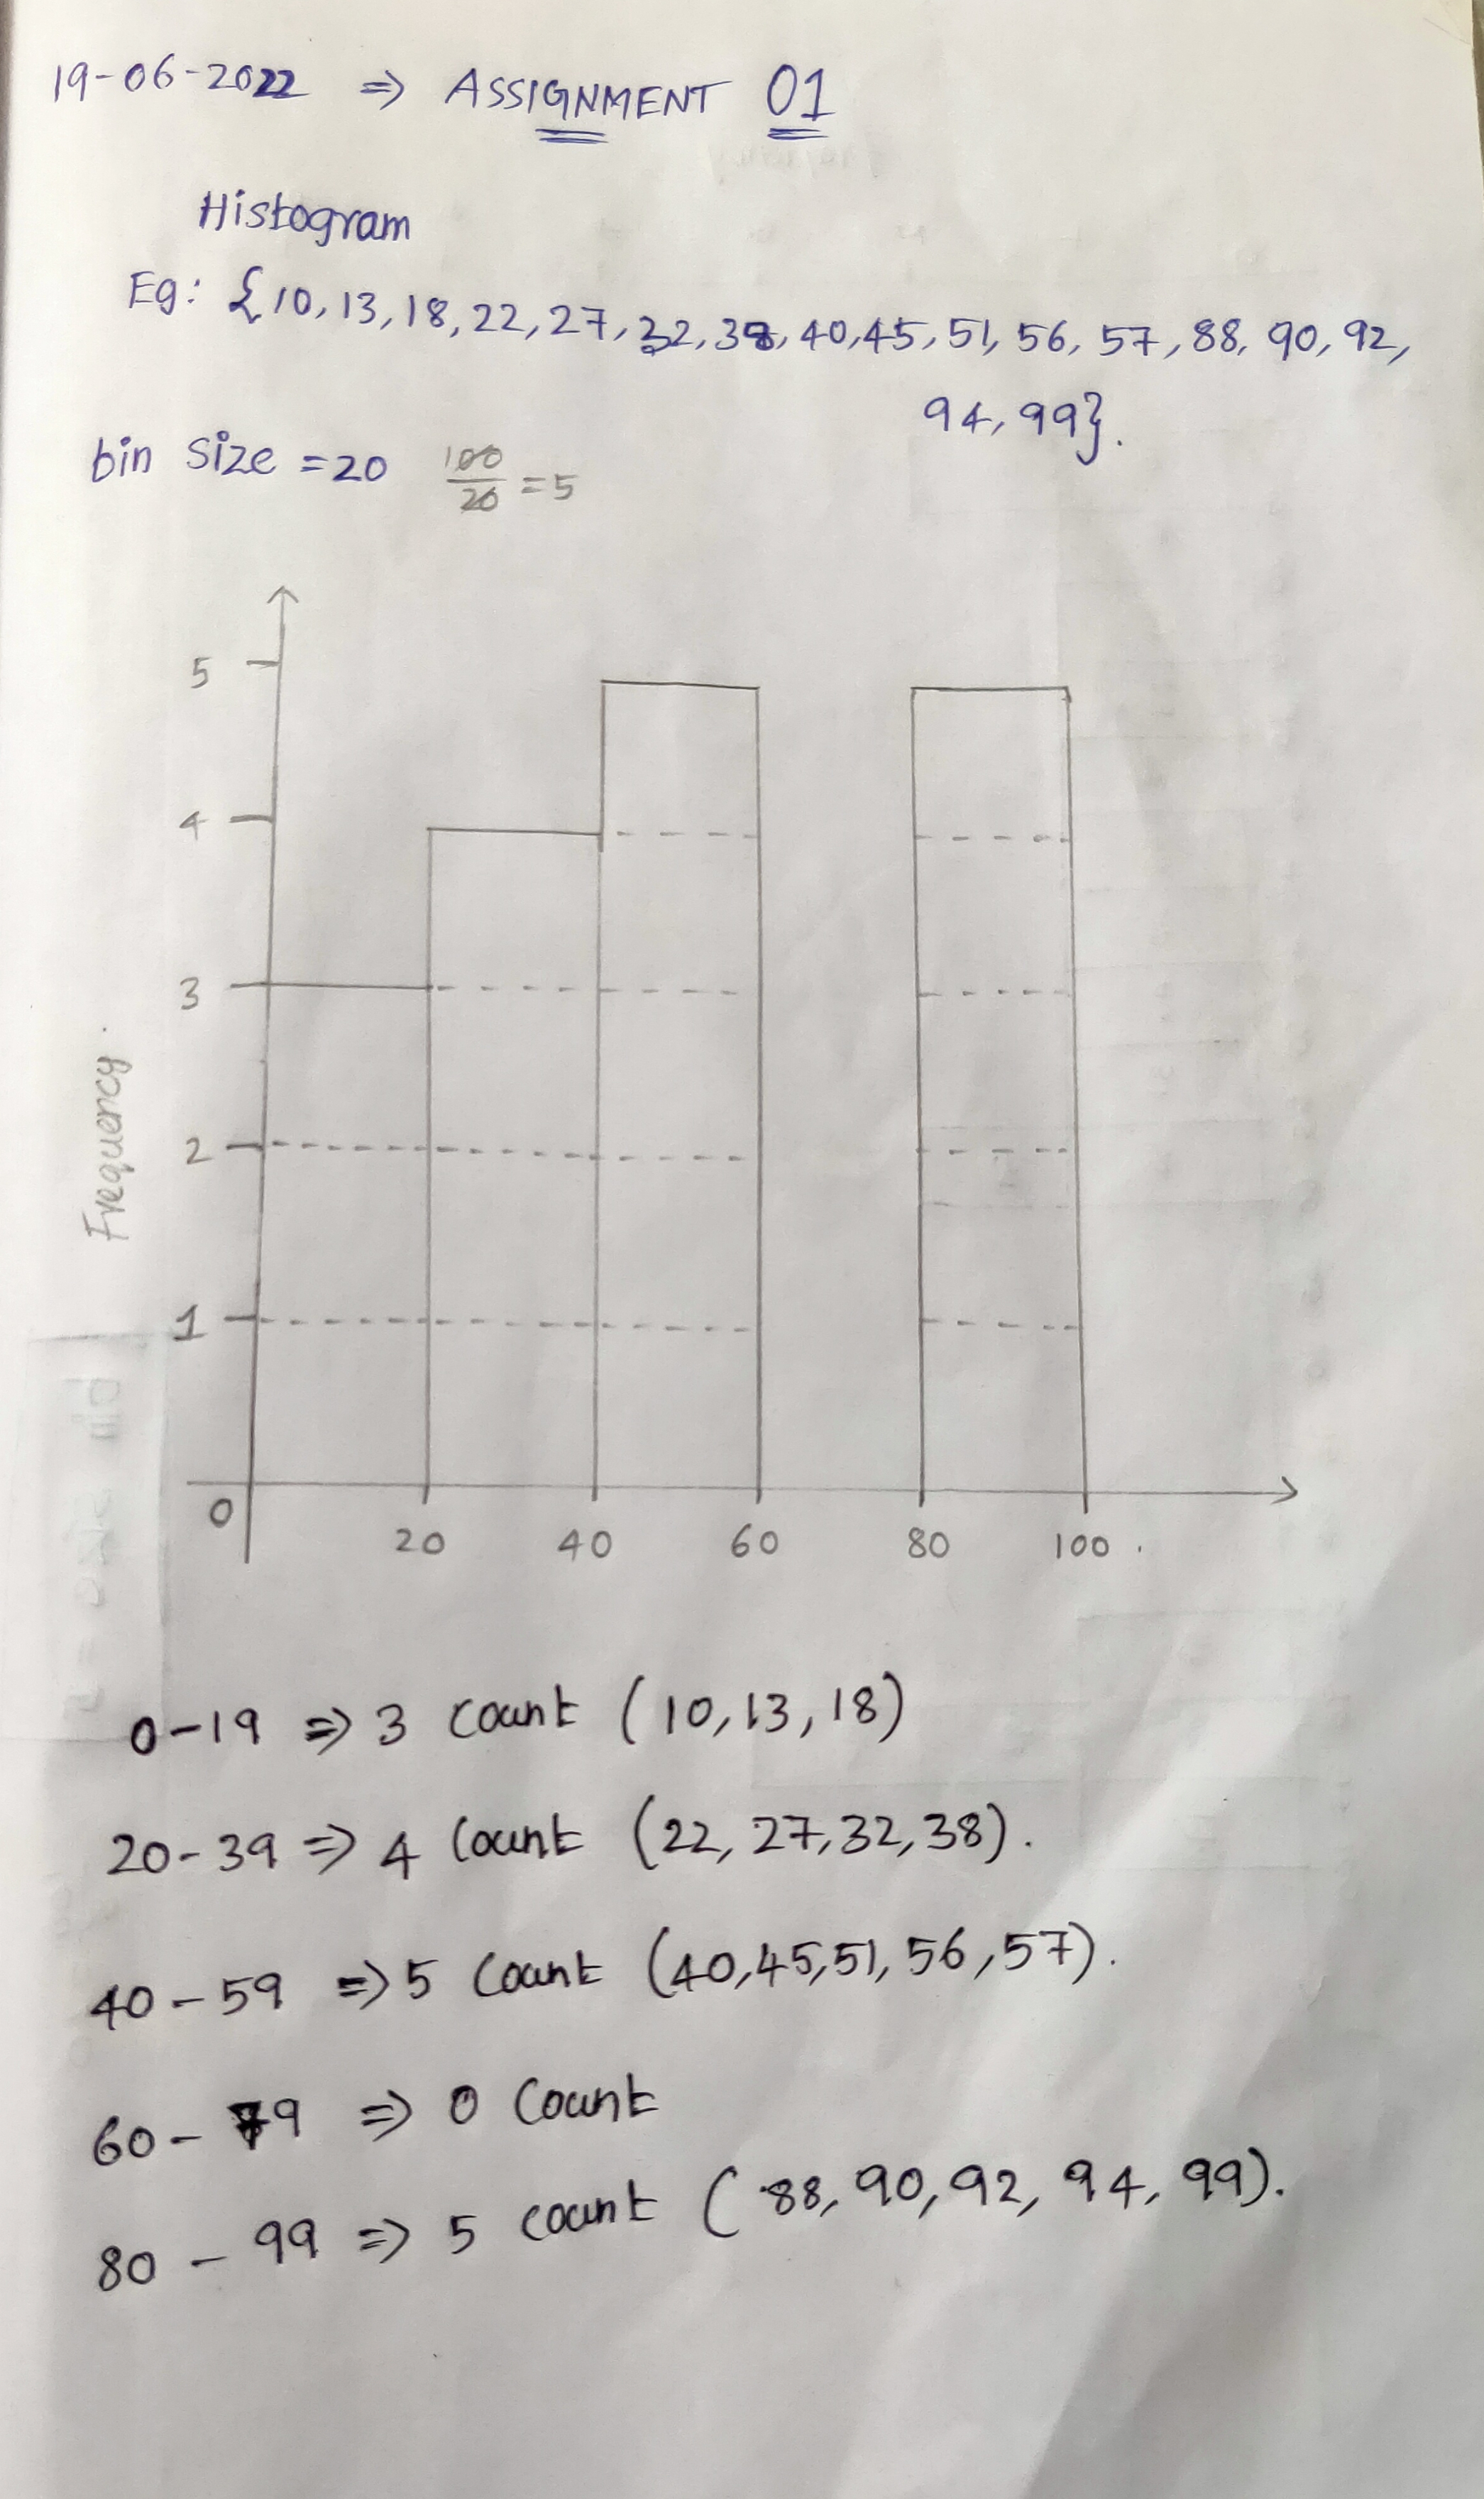 19-06-2022 ⇒ ASSIGNMENT 01
Histogram
Eg: {10, 13, 18, 22, 27, 32, 38, 40, 45, 51, 56, 57, 88, 90, 92,
94, 99}.
bin size = 20 100/20 = 5
5
4
3
2
1
Frequency.
0
20 40 60 80 100.
0-19 ⇒ 3 count (10, 13, 18)
20-39 ⇒ 4 count (22, 27, 32, 38).
40-59 ⇒ 5 count (40, 45, 51, 56, 57).
60-79 ⇒ 0 count
80-99 ⇒ 5 count (88, 90, 92, 94, 99).